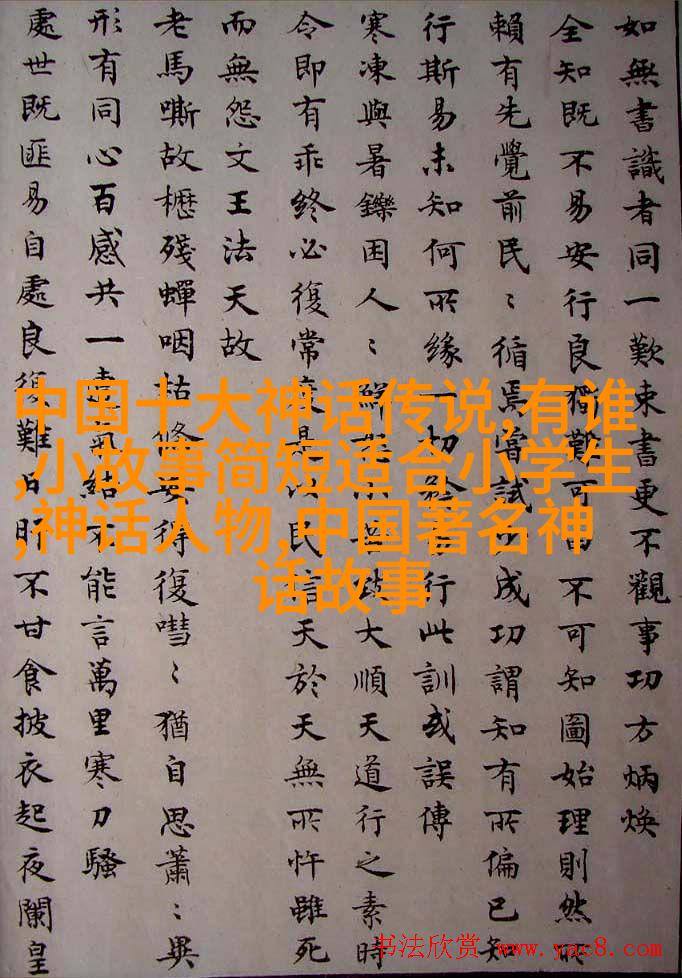 如無書識者同一歎束書更不觀事功方炳煥
全知既不易安行良獨難可不可知圖始理則然所
賴有先覺前民〻循焉嘗試成功謂知有所偏已知
行斯易未知何所緣一切行此訓或誤傳
寒凍與暑鑠困人〻鮮大順天道行之素時
令即有乖終必復常民信天於天無所忤雖死
而無怨文王法天故
老馬嘶故櫪殘蟬咽枯條安得復嘒〻猶自思蕭〻異
形有同心百感共一氣結不能言萬里寒刀騷
處世既匪易自處良復難時不甘食披衣起夜闌皇
中国十大神话传说,有谁
,小故事简短适合小学生
,神话人物,中国著名神
话故事
书法欣赏 www.yac8.com